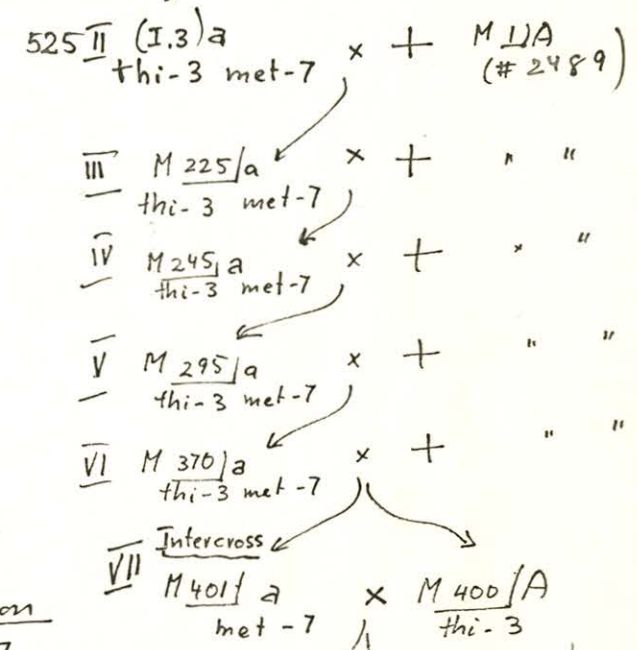 525 II (I.3) a × + M 1)A
thi-3 met-7 (# 2489)
III M 225/a × + " "
thi-3 met-7
IV M 245, a × + " "
thi-3 met-7
V M 295/a × + " "
thi-3 met-7
VI M 370/a × + " "
thi-3 met-7
Intercross
VII M 401/ a × M 400/A
met-7 thi-3